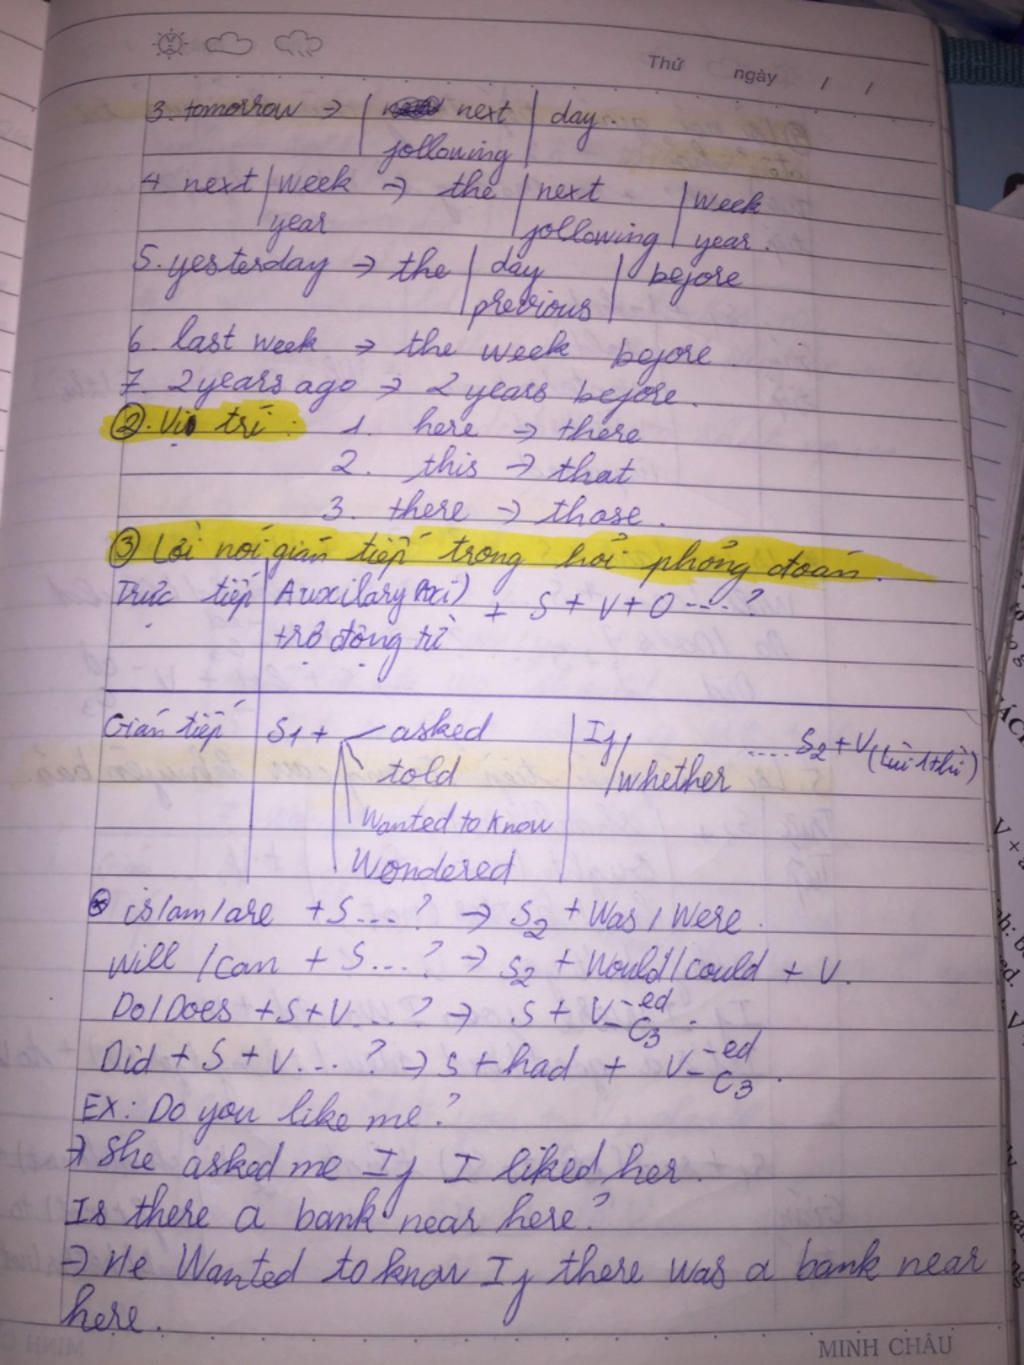 Thứ ngày / /
3. tomorrow → | next | day.
following
4 next | week → the | next | week
year following year.
5. yesterday → the | day | before
previous
6. last week → the week before
7. 2 years ago → 2 years before.
②. Vị trí : 1. here → there
2. this → that
3. there → those.
③ Lời nói gián tiếp trong hỏi phỏng đoán.
Trực tiếp | Auxilary (Axi) + S + V + O ....?
trợ động từ
Gián tiếp | S1 + asked | If / ..... S2 + V (lùi 1 thì)
told whether
Wanted to know
Wondered
⊛ is/am/are + S...? → S2 + Was / Were.
Will / Can + S...? → S2 + Would / could + V.
Do/Does + S+V...? → S + V-ed.
C3
Did + S + V...? → S + had + V-ed
C3.
EX: Do you like me?
→ She asked me If I liked her.
Is there a bank near here?
→ He Wanted to know If there was a bank near
here.
MINH CHÂU